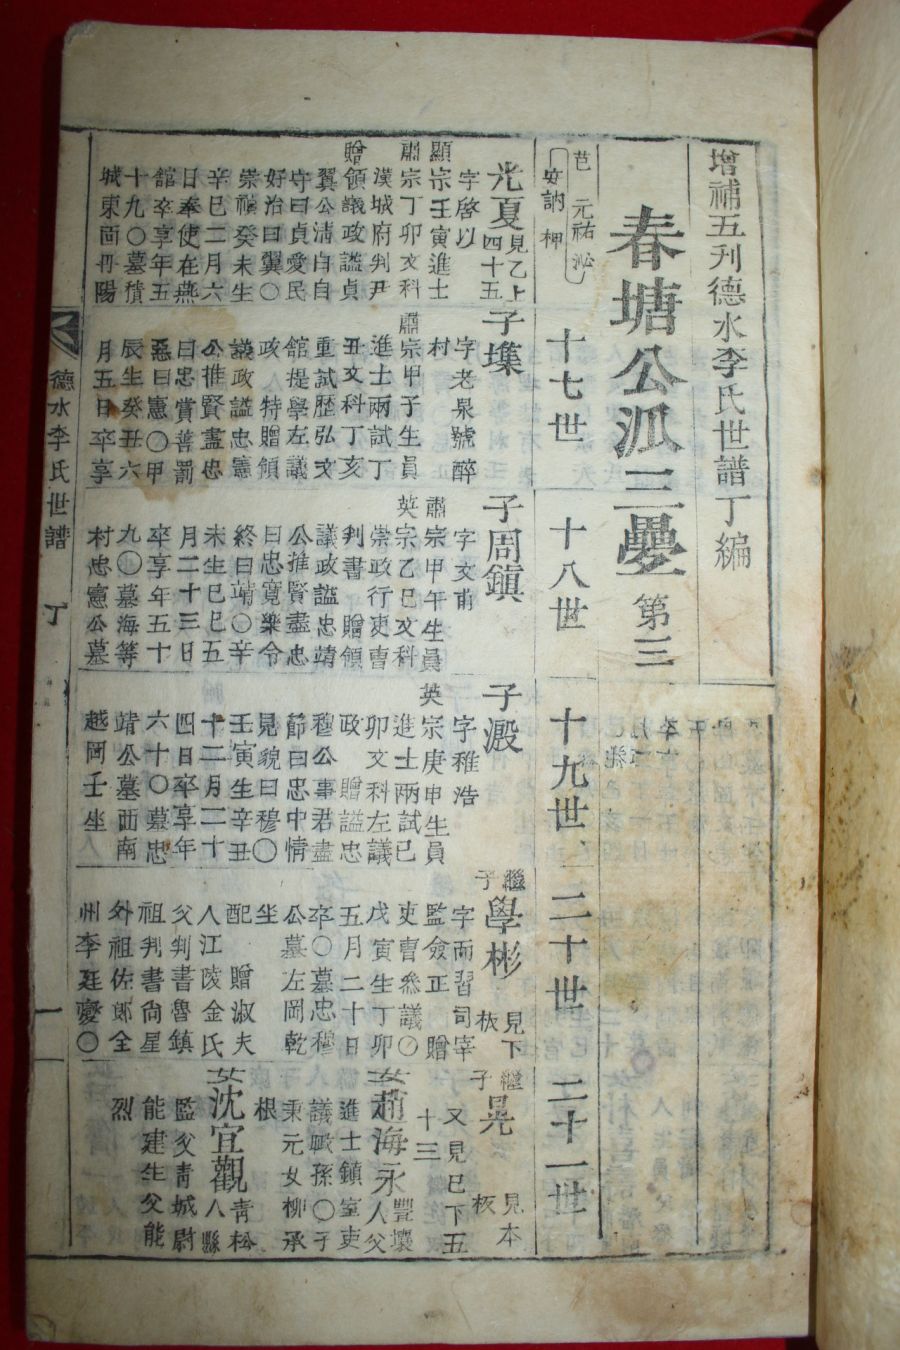 增補五刋德水李氏世譜丁編
春塘公派三疊 第三
芭 元祐 泌
安訥 柙
十七世
十八世
十九世
二十世
二十一世
光夏 見乙上四十五
字啓以
顯宗壬寅進士
肅宗丁卯文科
漢城府判尹
贈領議政謚貞
翼公淸白自
守曰貞愛民
好治曰翼○
崇禎癸未生
辛巳二月六
日奉使在燕
館卒享年五
十九○墓積
城東面丹陽
子㙫
字老泉號醉
村
肅宗甲子生員
進士兩試丁
丑文科丁亥
重試歷弘文
館提學左議
政特贈領
議政謚忠憲
公推賢盡忠
曰忠賞善罰
惡曰憲○甲
辰生癸丑六
月五日卒享
子周鎭
字文甫
肅宗甲午生員
英宗乙巳文科
崇政行吏曹
判書 贈領
議政謚忠靖
公推賢盡忠
曰忠寬樂令
終曰靖○辛
未生己巳五
月二十三日
卒享年五十
九○墓海等
村忠憲公墓
子溵
字稚浩
英宗庚申生員
進士兩試己
卯文科左議
政 贈謚忠
穆公事君盡
節曰忠中情
見貌曰穆○
壬寅生辛丑
十二月二十
四日卒享年
六十○墓忠
靖公墓西南
越岡壬坐
繼子學彬 見下板
字而習司宰
監僉正 贈
吏曹叅議○
戊寅生丁卯
五月二十日
卒○墓忠穆
公墓左岡乾
坐
配 贈淑夫
人江陵金氏
父判書魯鎭
祖判書尙星
外祖佐郞全
州李廷燮○
繼子晃 見本板
又見巳下五
十三
女趙海永 豐壤人父
進士鎭室吏
議職孫○子
秉元女柳承
根
女沈宜觀 靑松人縣
監父靑城尉
能建生父能
烈
德水李氏世譜 丁 一